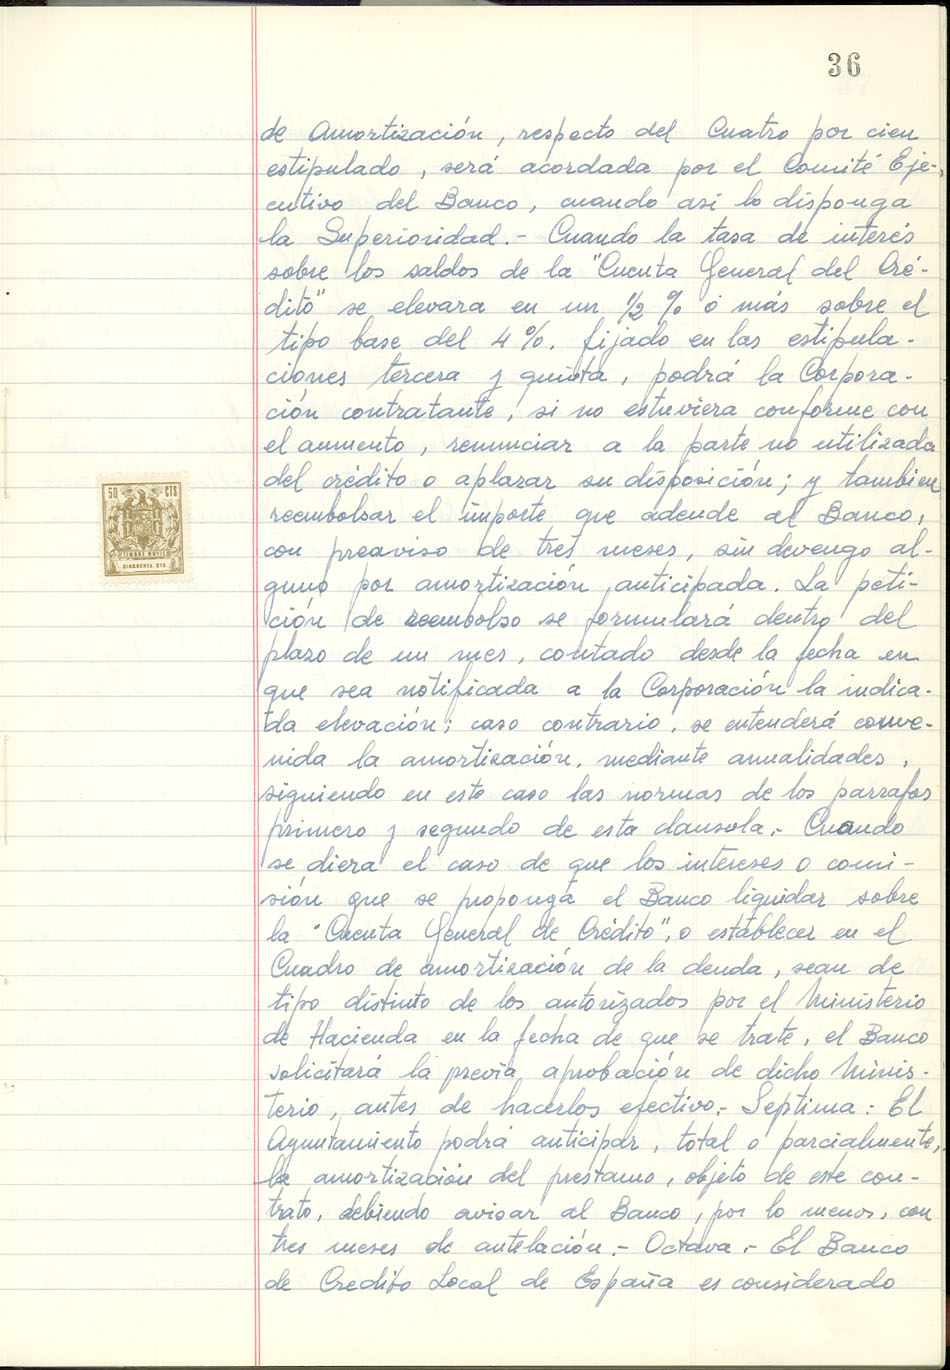 36
de Amortización, respecto del Cuatro por cien
estipulado, será acordada por el Comité Eje-
cutivo del Banco, cuando asi lo disponga
la Superioridad.- Cuando la tasa de interés
sobre los saldos de la "Cuenta General del Cré-
dito" se elevara en un ½ % ó más sobre el
tipo base del 4%. fijado en las estipula-
ciones tercera y quinta, podrá la Corpora-
ción contratante, si no estuviera conforme con
el aumento, renunciar a la parte no utilizada
del crédito o aplazar su disposición; y tambien
reembolsar el importe que adeude al Banco,
con preaviso de tres meses, sin devengo al-
guno por amortización anticipada. La peti-
ción de reembolso se formulará dentro del
plazo de un mes, contado desde la fecha en
que sea notificada a la Corporación la indica-
da elevación; caso contrario, se entenderá conve-
nida la amortización, mediante anualidades,
siguiendo en este caso las normas de los parrafos
primero y segundo de esta clausola.- Cuando
se diera el caso de que los intereses o comi-
sión que se proponga el Banco liquidar sobre
la "Cuenta General de Crédito", o establecer en el
Cuadro de amortización de la deuda, sean de
tipo distinto de los autorizados por el Ministerio
de Hacienda en la fecha de que se trate, el Banco
solicitará la previa aprobación de dicho Minis-
terio, antes de hacerlos efectivo.- Septima: El
Ayuntamiento podrá anticipar, total o parcialmente,
la amortización del prestamo, objeto de este con-
trato, debiendo avisar al Banco, por lo menos, con
tres meses de antelación.- Octava.- El Banco
de Credito Local de España es considerado
50 CTS
TIMBRE MOVIL
CINCUENTA CTS